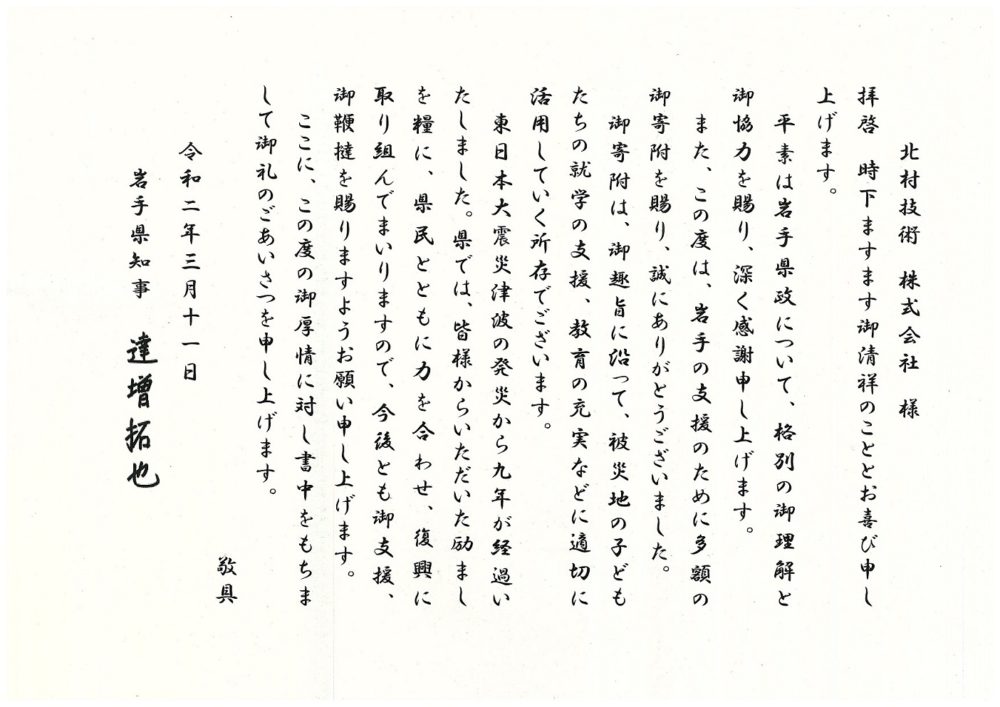 北村技術　株式会社　様
拝啓　時下ますます御清祥のこととお喜び申し
上げます。
平素は岩手県政について、格別の御理解と
御協力を賜り、深く感謝申し上げます。
また、この度は、岩手の支援のために多額の
御寄附を賜り、誠にありがとうございました。
御寄附は、御趣旨に沿って、被災地の子ども
たちの就学の支援、教育の充実などに適切に
活用していく所存でございます。
東日本大震災津波の発災から九年が経過い
たしました。県では、皆様からいただいた励まし
を糧に、県民とともに力を合わせ、復興に
取り組んでまいりますので、今後とも御支援、
御鞭撻を賜りますようお願い申し上げます。
ここに、この度の御厚情に対し書中をもちま
して御礼のごあいさつを申し上げます。
敬具
令和二年三月十一日
岩手県知事　達増拓也